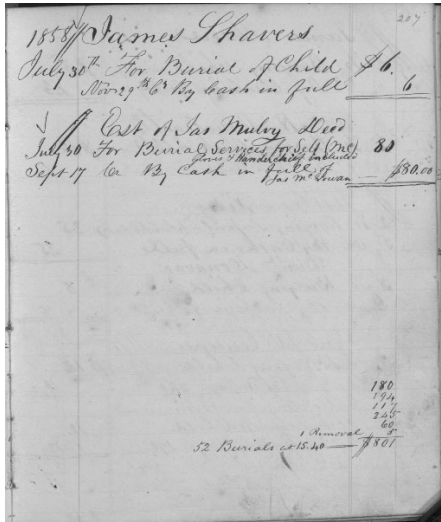 207
1858 James Shavers
July 30th For Burial of Child $6.
Nov 29th Cr By Cash in full 6
Est of Jas Mulvy Decd
July 30 For Burial Services for Self (Mc) 80
Gloves & Handerchief included
Sept 17 Cr By Cash in full of — $80.00
Jas McGowan
180
194
117
245
60
1 Removal 5
52 Burials at 15.40 — $801